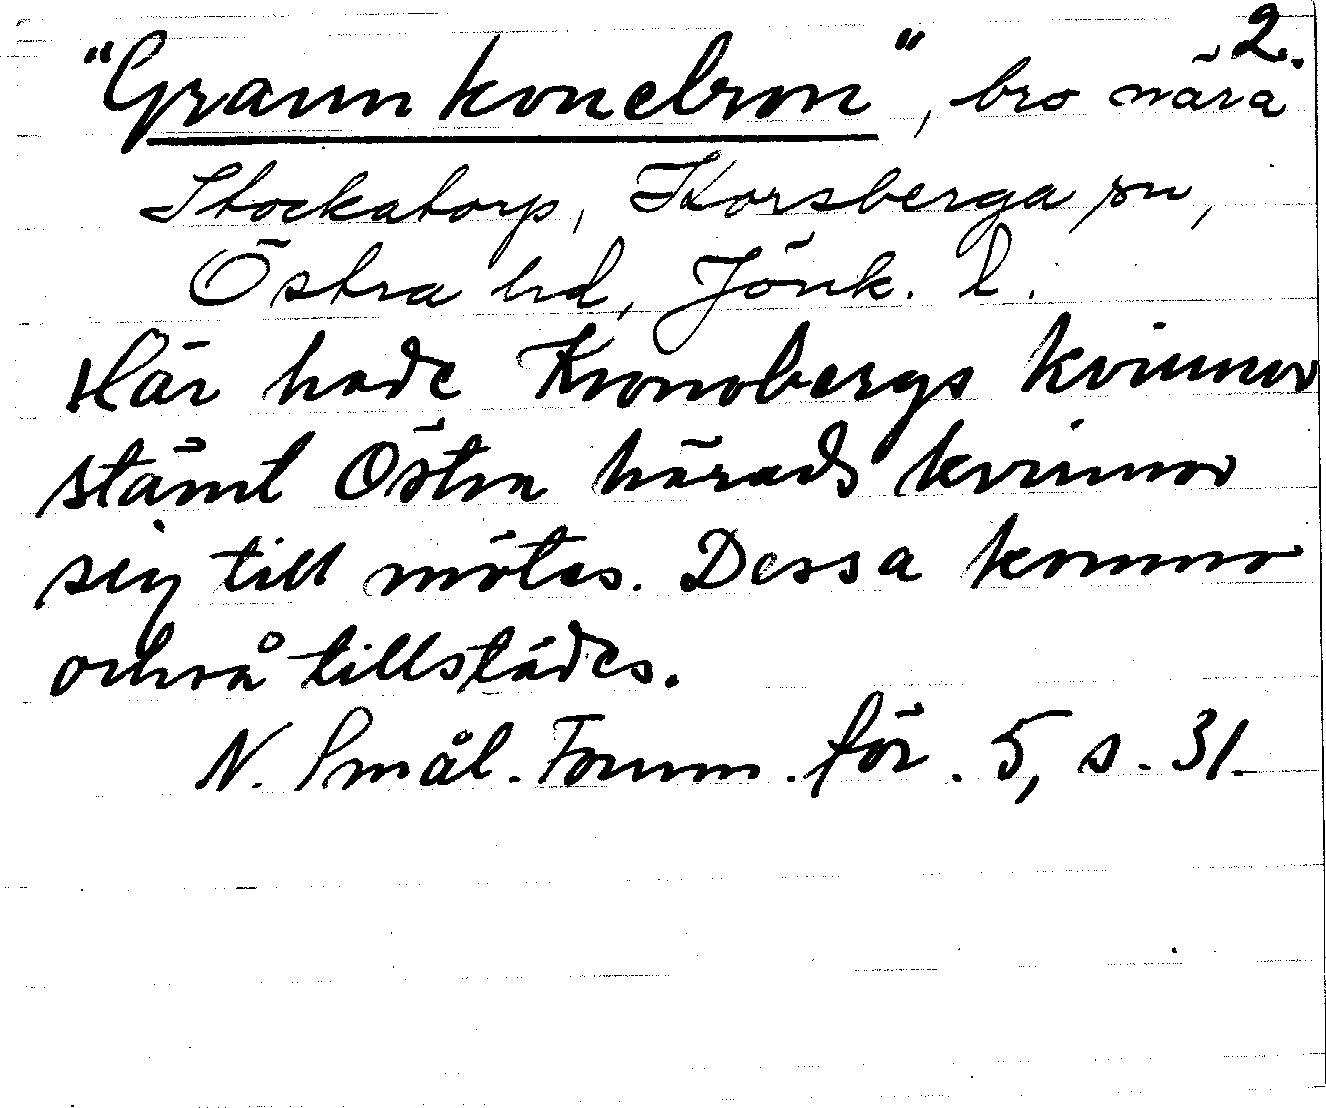 2.
"Grannkonebron", bro nära
Stockatorp, Korsberga sn,
Östra hd, Jönk. l.
Här hade Kronobergs kvinnor
stämt Östra härads kvinnor
sig till mötes. Dessa kommo
också tillstädes.
N. Smål. Fornm. för. 5, s. 31.